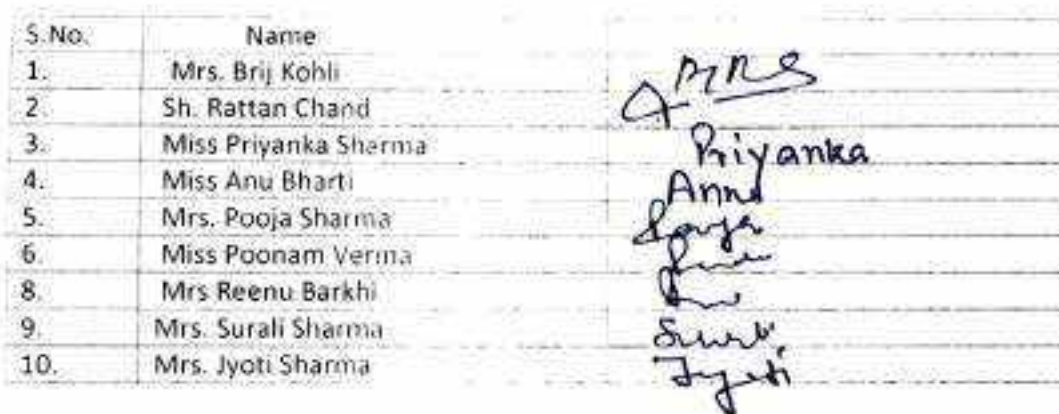 S.No. Name
1. Mrs. Brij Kohli
2. Sh. Rattan Chand
3. Miss Priyanka Sharma Priyanka
4. Miss Anu Bharti
5. Mrs. Pooja Sharma
6. Miss Poonam Verma
8. Mrs Reenu Barkhi
9. Mrs. Surali Sharma
10. Mrs. Jyoti Sharma Jyoti